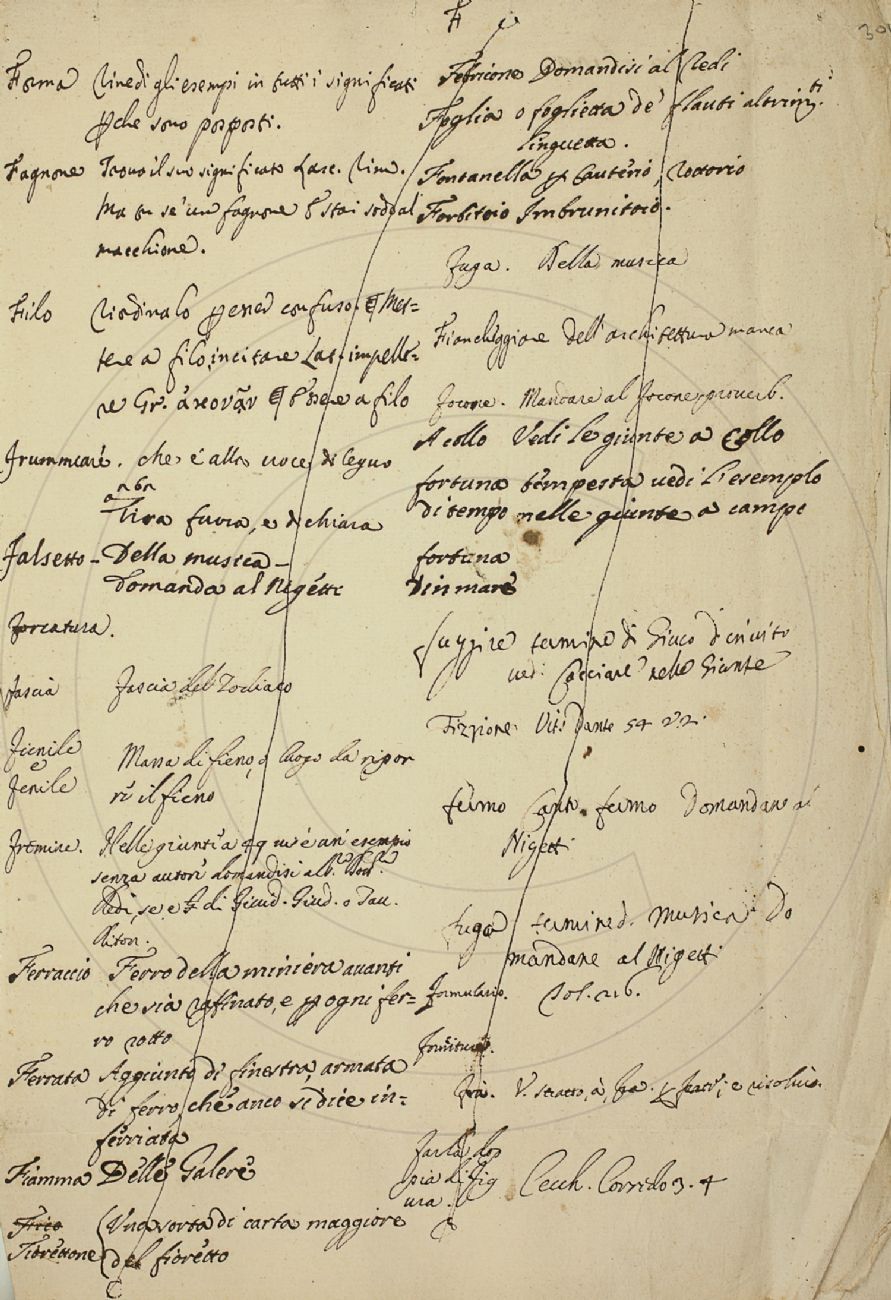 F
30
Forma Rivedi gli esempi in tutti i significati
che sono posposti.
Fagnone Trovo il suo significato Lasc. Rim.
Ma tu se' un fagnone e stai sodo al
macchione.
Filo Riordinalo confuso. Met=
tere a filo, incitare Lat. impelle=
re Gr. a filo
Frummiare. che è alla voce di legno
Tira fuora, e dichiara
Falsetto - Della musica -
Domanda al Nigetti
Forcatura.
fascia fascia del Zodiaco
Fienile
e
Fenile
Massa di fieno, o luogo da ripor
re il fieno
Fremire. Nelle giunte a 49 vi è un esempio
senza autore domandisi all'
Redi, se e di Giud. Giud. o Tav.
Riton.
Ferraccio Ferro della miniera avanti
che sia raffinato, e ogni fer=
ro rotto
Ferrata Aggiunto di finestra, armata
di ferro, che anco si dice in=
ferriata
Fiamma Delle Galere
Fiorettone Una sorta di carta maggiore
del fioretto
Febrione Domandisi al Redi
Foglia o foglietta de' flauti altrim.ti
linguetta.
Fontanella Cauterio, Rottorio
Forbitoio Imbrunitoio.
Fuga. Della musica
Fiancheggiare dell'architettura manca
focone. Mandare al focone proverb.
A collo Vedi le giunte a Collo
fortuna tempesta vedi l'esempio
di tempo nelle giunte a campo
fortuna
di mare
fuggire termine di Giuco d'invito
ved. Cacciare nelle Giunte
Fizione Vit. Dante 54
fermo Cant. fermo Domandare al
Nigetti
fuga termine d. Musica Do
mandare al Nigetti
formulario.
fornitura.
fra. V. tratto, a, fra.
farla dop
pia di fig
ura. Cecch. Corredo 3. 4